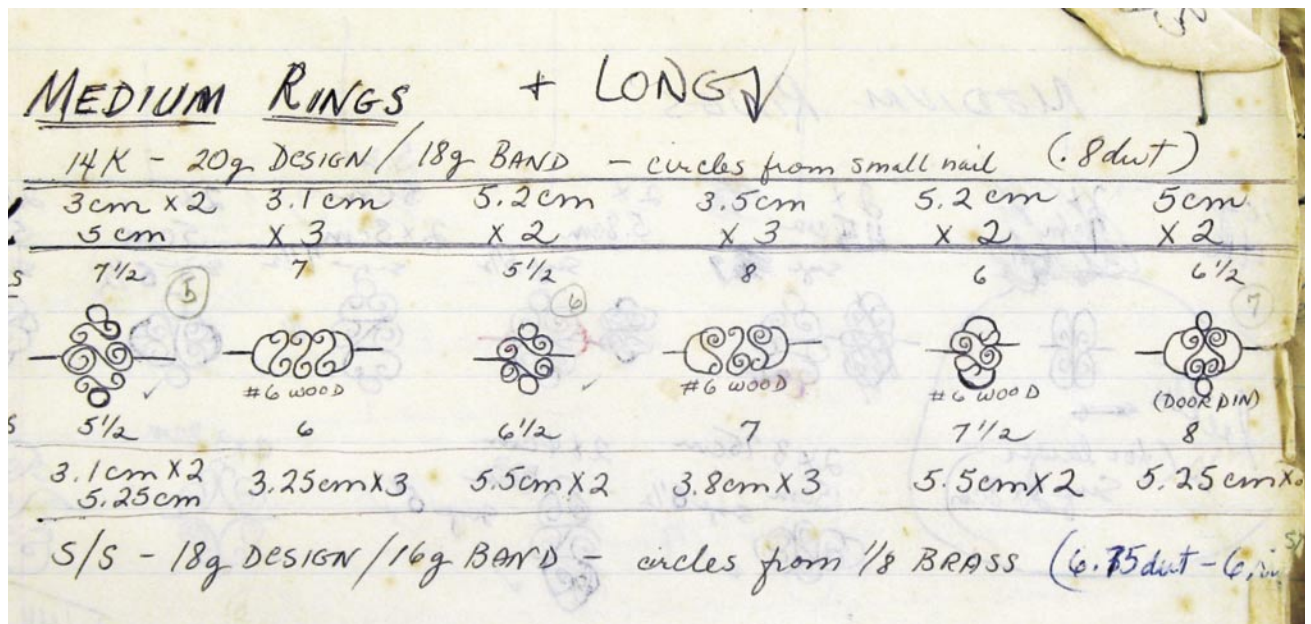 MEDIUM RINGS + LONG
14K - 20g DESIGN / 18g BAND - circles from small nail (.8dwt)
3cm x 2 3.1cm 5.2cm 3.5cm 5.2cm 5cm
5cm x 3 x 2 x 3 x 2 x 2
S 7 1/2 7 5 1/2 8 6 6 1/2
5 6 7
#6 WOOD #6 WOOD #6 WOOD (DOOR PIN)
S 5 1/2 6 6 1/2 7 7 1/2 8
3.1cm x 2 3.25cm x 3 5.5cm x 2 3.8cm x 3 5.5cm x 2 5.25cm x
5.25cm
S/S - 18g DESIGN / 16g BAND - circles from 1/8 BRASS (6.75dwt - 6,